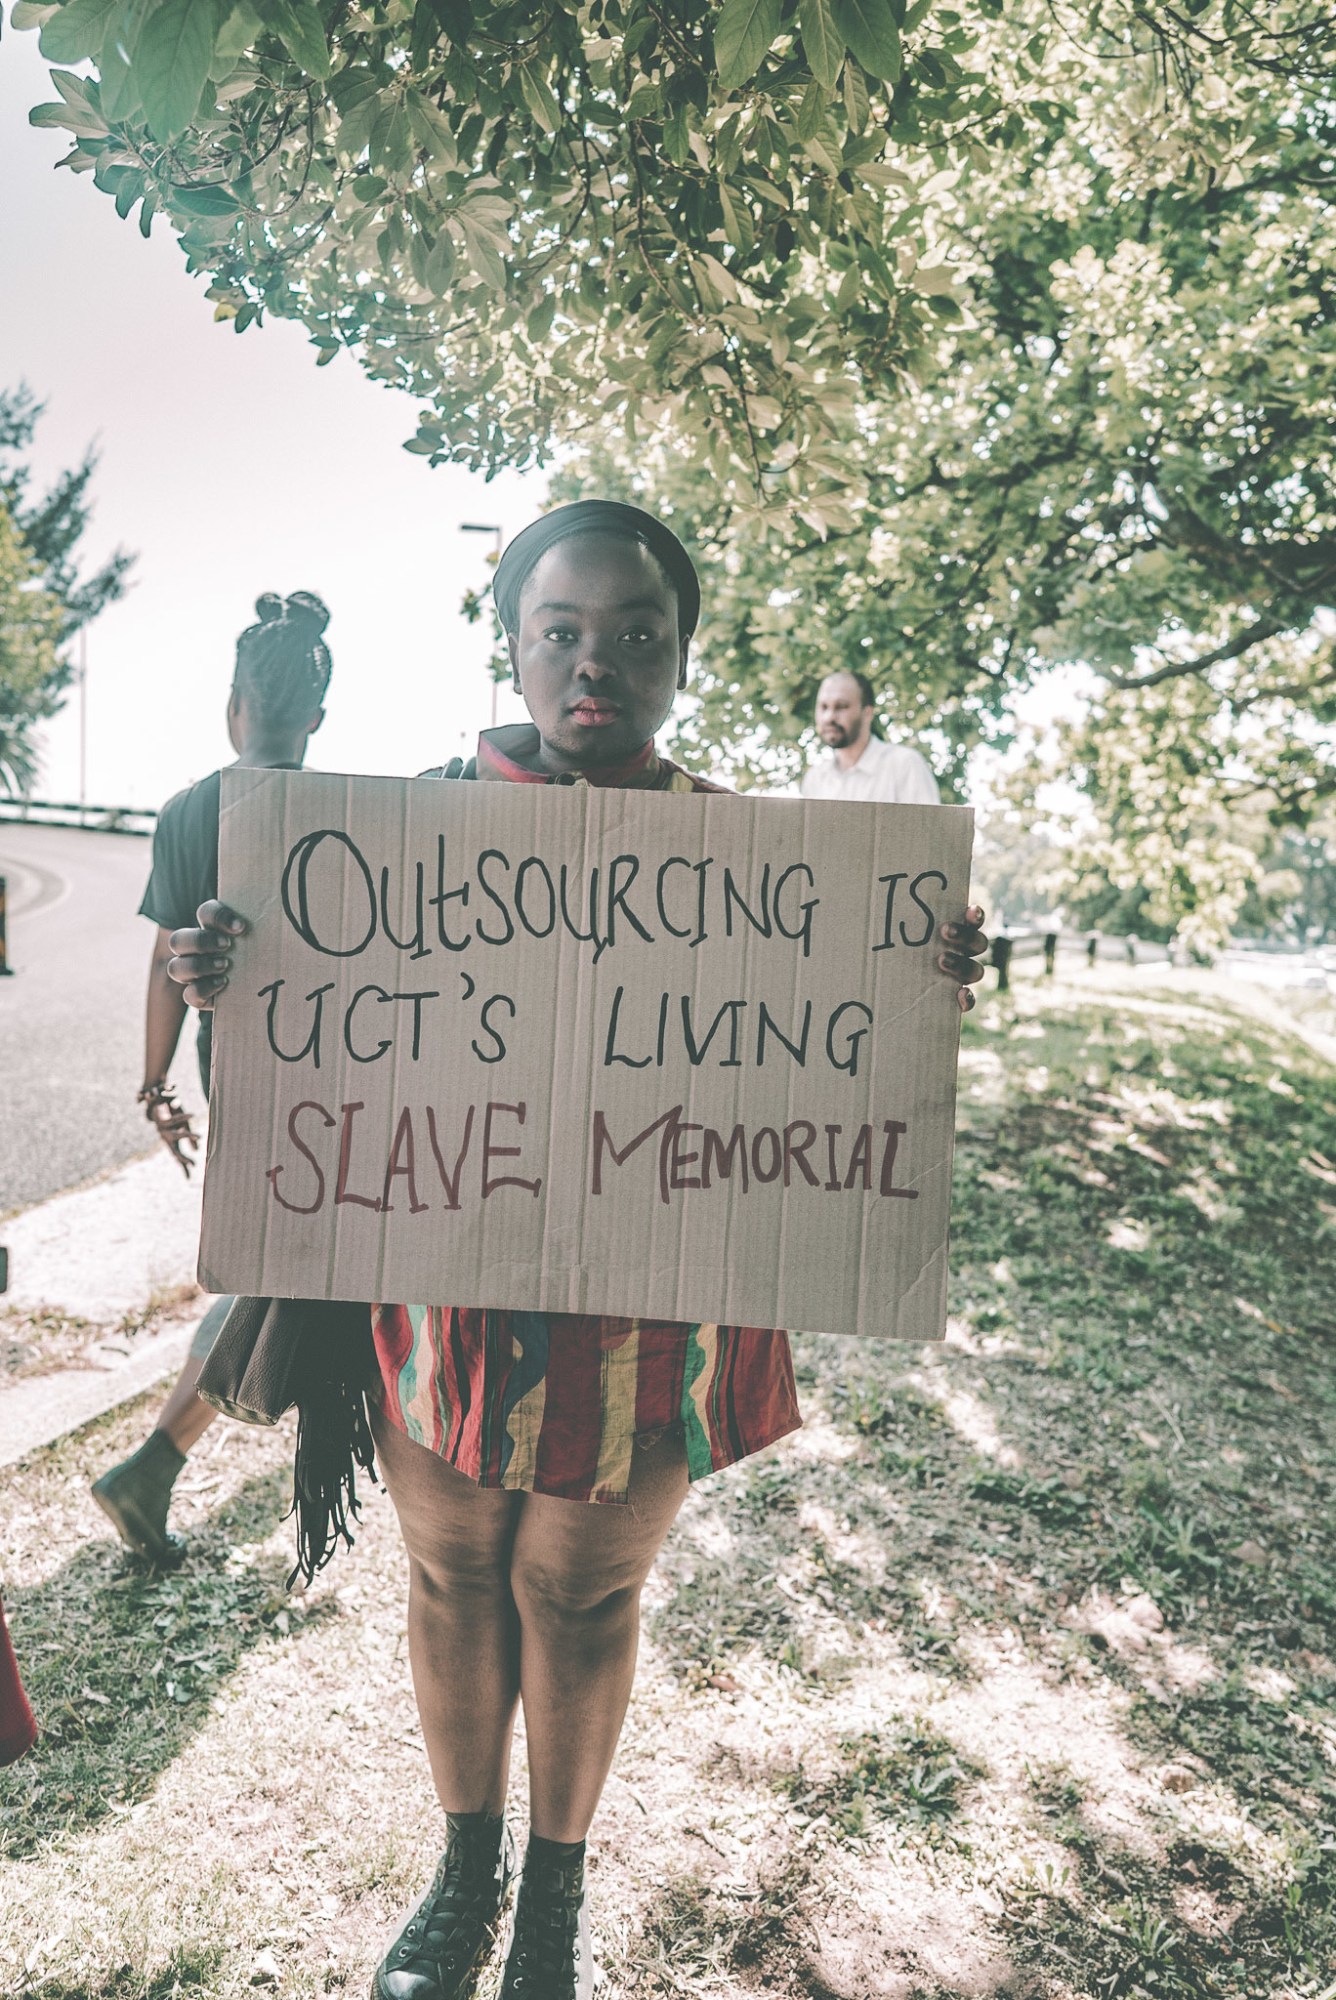 OutSOURCING IS
UCT'S LIVING
SLAVE MEMORIAL